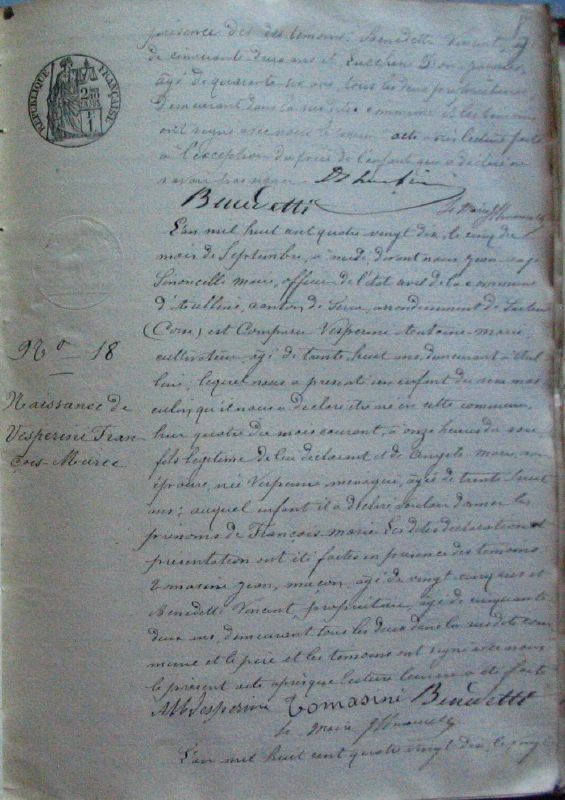 présence des dits témoins Benedetti Vincent, âgé
de cinquante deux ans et Lucchini Don Jeannes
âgé de quarante six ans, tous les deux propriétaires
demeurant dans la susdite commune et les témoins
ont signé avec nous le présent acte après lecture faite
à l'exception du père de l'enfant qui a déclaré ne
savoir pas signer
Benedetti
Le Maire
RÉPUBLIQUE FRANÇAISE
L'an mil huit cent quatre vingt dix, le cinq du
mois de Septembre, à midi, devant nous Jean-
Simoncelli maire, officier de l'état civil de la commune
d'Aullène, canton de Serra, arrondissement de Sartène
(Corse) est Comparu Vesperini Antoine-Marie
cultivateur âgé de trente huit ans, demeurant à Aul
lène; lequel nous a présenté un enfant du sexe mas
culin, qu'il nous a déclaré être né en cette commune,
hier quatre du mois courant, à onze heures du soir
fils légitime de lui déclarant et de Angele-Marie, son
épouse, née Vesperini ménagère, âgée de trente huit
ans; auquel enfant il a déclaré vouloir donner les
prénoms de François-Marie. Les dites déclaration et
présentation ont été faites en présence des témoins
Tomasini Jean, maçon, âgé de vingt-cinq ans et
Benedetti Vincent, propriétaire, âgé de cinquante
deux ans, demeurant tous les deux dans la susdite com
mune et le père et les témoins ont signé avec nous
le présent acte après que lecture leur en a été faite
AM Vesperini Tomasini Benedetti
Le Maire
N° 18
Naissance de
Vesperini Fran-
çois-Marie
L'an mil huit cent quatre vingt dix, le vingt